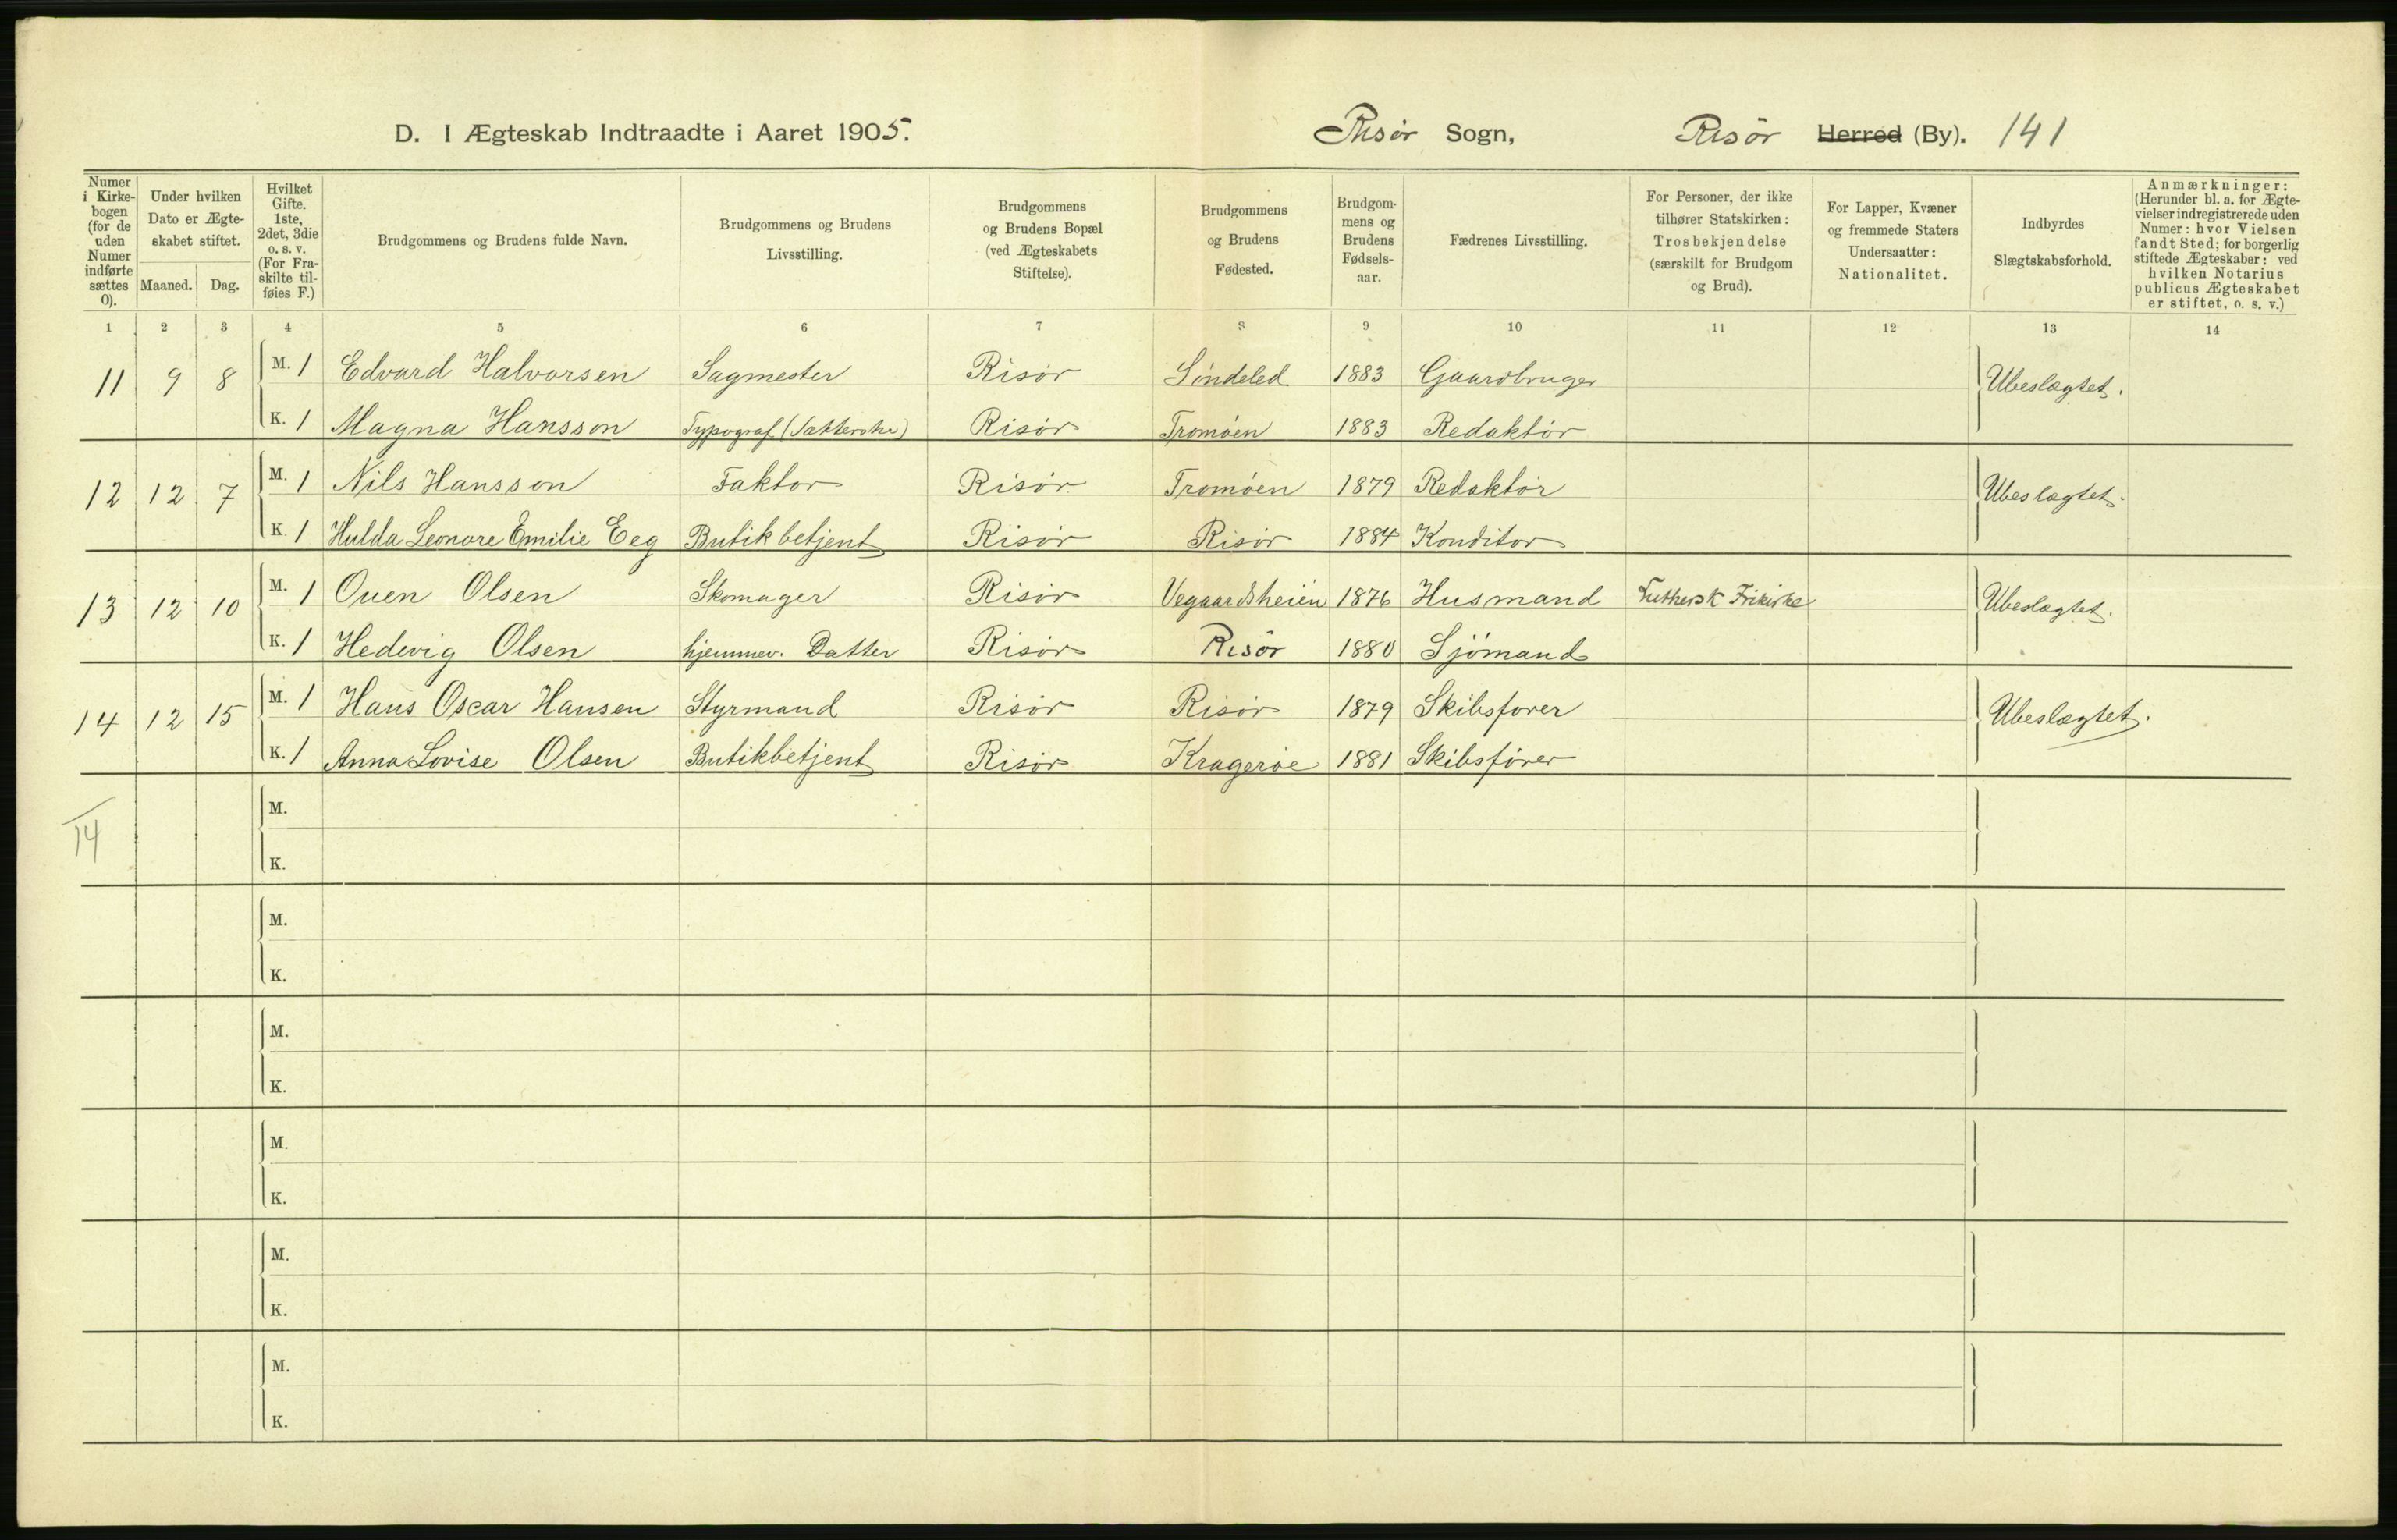 D. I Ægteskab Indtraadte i Aaret 1905. Risør Sogn, Risør Herred (By). 141
Numer i Kirkebogen (for de uden Numer indførte sættes 0).
Under hvilken Dato er Ægteskabet stiftet.
Maaned. Dag.
Hvilket Gifte. 1ste, 2det, 3die o. s. v. (For Fraskilte tilføies F.)
Brudgommens og Brudens fulde Navn.
Brudgommens og Brudens Livsstilling.
Brudgommens og Brudens Bopæl (ved Ægteskabets Stiftelse).
Brudgommens og Brudens Fødested.
Brudgommens og Brudens Fødselsaar.
Fædrenes Livsstilling.
For Personer, der ikke tilhører Statskirken: Trosbekjendelse (særskilt for Brudgom og Brud).
For Lapper, Kvæner og fremmede Staters Undersaatter: Nationalitet.
Indbyrdes Slægtskabsforhold.
Anmærkninger: (Herunder bl. a. for Ægtevielser indregistrerede uden Numer: hvor Vielsen fandt Sted; for borgerlig stiftede Ægteskaber: ved hvilken Notarius publicus Ægteskabet er stiftet, o. s. v.)
1 2 3 4 5 6 7 8 9 10 11 12 13 14
11 9 8 M. 1 Edvard Halvorsen Sagmester Risør Söndeled 1883 Gaardbruger Ubeslægtet.
K. 1 Magna Hansson Typograf (Sætterske) Risør Tromöen 1883 Redaktör
12 12 7 M. 1 Nils Hansson Faktor Risør Tromöen 1879 Redaktör Ubeslægtet.
K. 1 Hulda Leonore Emilie Eeg Butikbetjent Risør Risør 1884 Konditor
13 12 10 M. 1 Ouen Olsen Skomager Risør Vegaardsheien 1876 Husmand Luthersk Frikirke Ubeslægtet.
K. 1 Hedevig Olsen hjemmev. Datter Risør Risør 1880 Sjömand
14 12 15 M. 1 Hans Oscar Hansen Styrmand Risør Risør 1879 Skibsförer Ubeslægtet.
K. 1 Anna Lovise Olsen Butikbetjent Risør Kragerøe 1881 Skibsförer
14
M.
K.
M.
K.
M.
K.
M.
K.
M.
K.
M.
K.